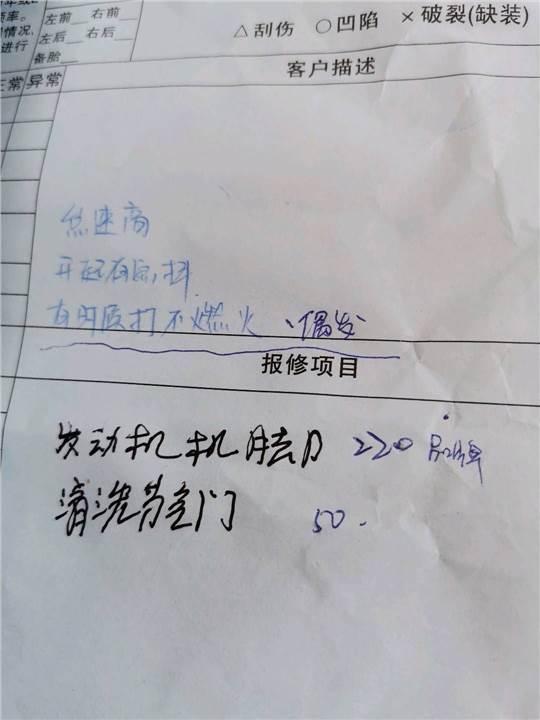 率。
情况,
进行
左前 右前
左后 右后
备胎
△刮伤 ○凹陷 ×破裂(缺装)
正常 异常
客户描述
怠速高
抖
有时候打不燃火、偶发
报修项目
发动机机脚 220
清洗节气门 50.